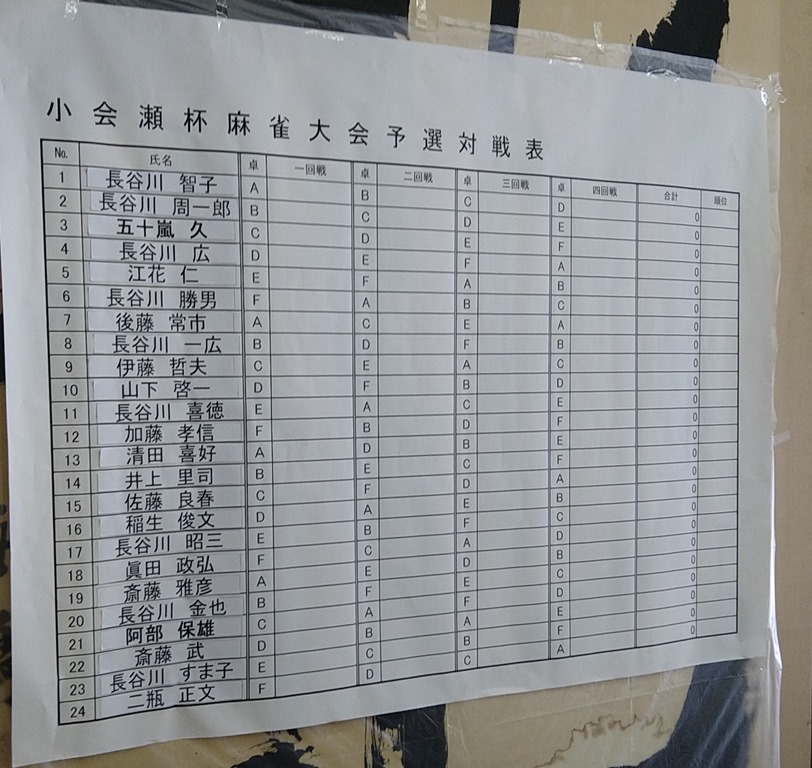 小会瀬杯麻雀大会予選対戦表
No. 氏名 卓 一回戦 卓 二回戦 卓 三回戦 卓 四回戦 合計 順位
1 長谷川 智子 A B C D 0
2 長谷川 周一郎 B C D E 0
3 五十嵐 久 C D E F 0
4 長谷川 広 D E F A 0
5 江花 仁 E F A B 0
6 長谷川 勝男 F A B C 0
7 後藤 常市 A C E A 0
8 長谷川 一広 B D F B 0
9 伊藤 哲夫 C E A C 0
10 山下 啓一 D F B D 0
11 長谷川 喜徳 E A C E 0
12 加藤 孝信 F B D F 0
13 清田 喜好 A D B E 0
14 井上 里司 B E C F 0
15 佐藤 良春 C F D A 0
16 稲生 俊文 D A E B 0
17 長谷川 昭三 E B F C 0
18 眞田 政弘 F C A D 0
19 斎藤 雅彦 A E D B 0
20 長谷川 金也 B F E C 0
21 阿部 保雄 C A F D 0
22 斎藤 武 D B A E 0
23 長谷川 すま子 E C B F 0
24 二瓶 正文 F D C A 0